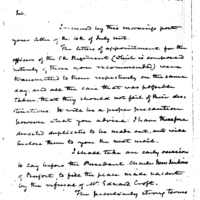 Sir.
I received by this mornings post
your letter of the 10th of July inst.
The letters of appointment for the
officers of the 1st Regiment (which is composed
entirely of those you recommended) were
transmitted to them respectively on the same
day, and all the care that was possible
taken, that they should not fail of their des-
tinations. It will be a proper precaution
however what you advise. I have therefore
directed duplicates to be made out, and will
inclose them to you the next mail.
I shall take an early occasion
to lay before the President Charles Jenkins
of Beaufort, to fill the place made vacant
by the refusal of Mr. Edward Croft.
The precedently strong terms